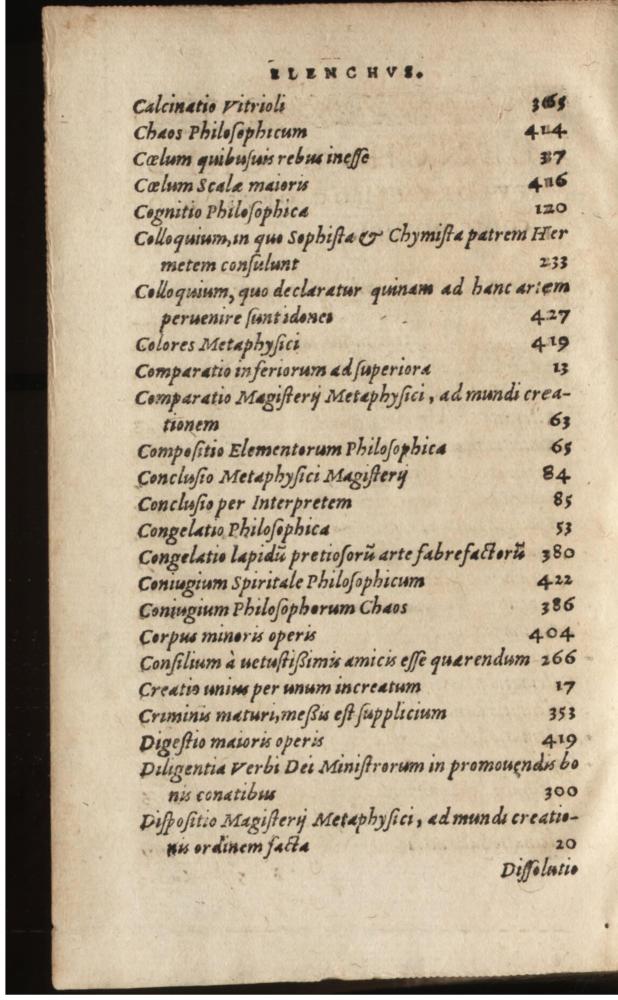 ELENCHVS.
Calcinatio Vitrioli 365
Chaos Philosophicum 414
Cœlum quibusuis rebus inesse 37
Cœlum Scalæ maioris 416
Cognitio Philosophica 120
Colloquium, in quo Sophista & Chymista patrem Her
metem consulunt 233
Colloquium, quo declaratur quinam ad hanc artem
peruenire sunt idonei 427
Colores Metaphysici 419
Comparatio inferiorum ad superiora 13
Comparatio Magisterij Metaphysici, ad mundi crea-
tionem 63
Compositio Elementorum Philosophica 65
Conclusio Metaphysici Magisterij 84
Conclusio per Interpretem 85
Congelatio Philosophica 53
Congelatio lapidũ pretiosorũ arte fabrefactorũ 380
Coniugium Spiritale Philosophicum 422
Coniugium Philosophorum Chaos 386
Corpus minoris operis 404
Consilium à uetustißimis amicis esse quærendum 266
Creatio unius per unum increatum 17
Criminis maturi, meßis est supplicium 353
Digestio maioris operis 419
Diligentia Verbi Dei Ministrorum in promouendis bo
nis conatibus 300
Dispositio Magisterij Metaphysici, ad mundi creatio-
nis ordinem facta 20
Dissolutio